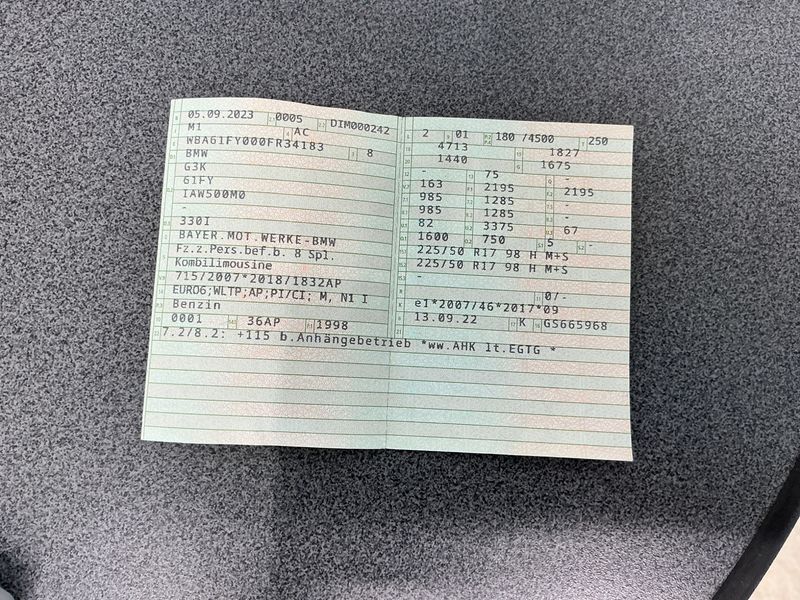 05.09.2023 0005 DIM000242
M1 AC
WBA61FY000FR34183 8
BMW
G3K
61FY
IAW500M0
-
330I
BAYER.MOT.WERKE-BMW
Fz.z.Pers.bef.b. 8 Spl.
Kombilimousine
715/2007*2018/1832AP
EURO6;WLTP;AP;PI/CI; M, N1 I
Benzin
0001 36AP 1998
7.2/8.2: +115 b.Anhängebetrieb *ww.AHK lt.EGTG *
2 01 180 /4500 250
4713 1827
1440 1675
- 75 -
163 2195 2195
985 1285 -
985 1285 -
82 3375 67
1600 750 5 -
225/50 R17 98 H M+S
225/50 R17 98 H M+S
-
0/-
e1*2007/46*2017*09
13.09.22 K GS665968